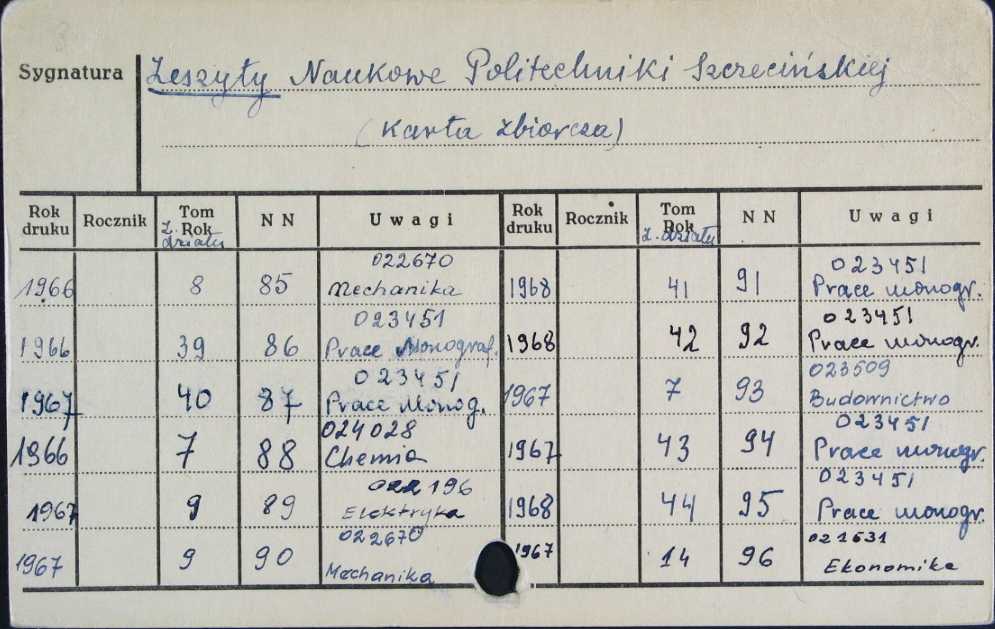 Sygnatura Zeszyty Naukowe Politechniki Szczecińskiej
(Karta zbiorcza)
Rok druku Rocznik Tom Rok Z. działu NN Uwagi Rok druku Rocznik Tom Rok Z. działu NN Uwagi
022670 023451
1966 8 85 Mechanika 1968 41 91 Prace monogr.
023451 023451
1966 39 86 Prace Monograf. 1968 42 92 Prace monogr.
023451 023509
1967 40 87 Prace Monog. 1967 7 93 Budownictwo
024028 023451
1966 7 88 Chemia 1967 43 94 Prace monogr.
022196 023451
1967 9 89 Elektryka 1968 44 95 Prace monogr.
022670 021631
1967 9 90 Mechanika 1967 14 96 Ekonomika